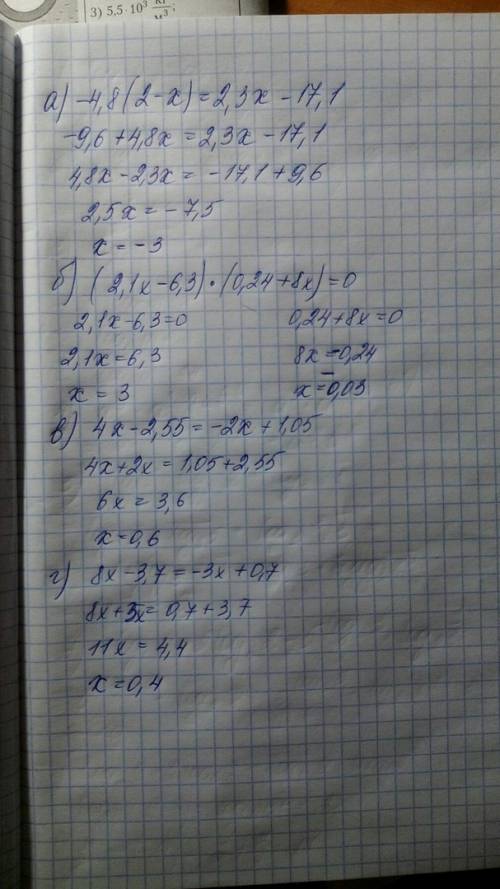 3) 5,5·10³ кг/м³;
а) -4,8(2-x)=2,3x-17,1
-9,6+4,8x=2,3x-17,1
4,8x-2,3x=-17,1+9,6
2,5x=-7,5
x=-3
б) (2,1x-6,3)·(0,24+8x)=0
2,1x-6,3=0 0,24+8x=0
2,1x=6,3 8x=-0,24
x=3 x=-0,03
в) 4x-2,55=-2x+1,05
4x+2x=1,05+2,55
6x=3,6
x=0,6
г) 8x-3,7=-3x+0,7
8x+3x=0,7+3,7
11x=4,4
x=0,4